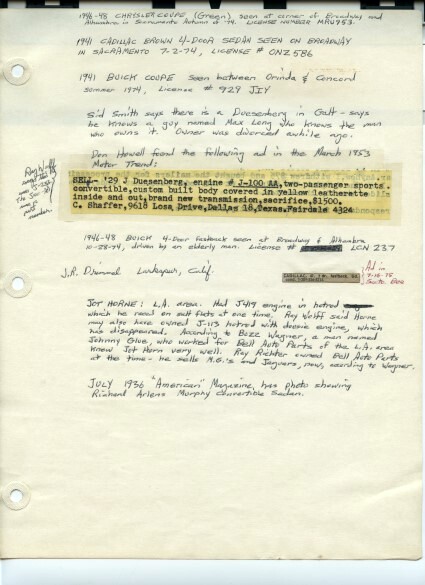 1946-48 CHRYSLER COUPE (Green), seen at corner of Broadway and
Alhambra in Sacramento Autumn of '74. LICENSE NUMBER MRU953.
1941 CADILLAC BROWN 4-DOOR SEDAN SEEN ON BROADWAY
IN SACRAMENTO 7-2-74, LICENSE # ONZ586
1941 BUICK COUPE seen between Orinda & Concord
summer 1974, License # 929 JIY
Sid Smith says there is a Duesenberg in Galt - says
he knows a guy named Max Long who knows the man
who owns it. Owner was divorced awhile ago.
Don Howell found the following ad in the March 1953
Motor Trend:
Ray Wolff
SELL- '29 J Duesenberg, engine # J-100 AA, two-passenger sports
convertible, custom built body covered in yellow leatherette
inside and out, brand new transmission, sacrifice, $1500.
C. Shaffer, 9618 Losa Drive, Dallas 18, Texas, Fairdale 4324
1946-48 BUICK 4-Door Fastback seen at Broadway & Alhambra
10-28-74, driven by an elderly man. License # LCN 237
J.R. Larkspur, Calif.
Ad in
7-18-75
JOT HORNE: L.A. area. Had J-419 engine in hotrod
which he raced on salt flats at one time. Ray Wolff said Horne
may also have owned J-113 hotrod with doosie engine, which
has disappeared. According to Bozz Wagner, a man named
Johnny Glue, who worked for Bell Auto Parts of the L.A. area
knew Jot Horn very well. Roy Richter owned Bell Auto Parts
at the time - he sells M.G.'s and Jaguars, now, according to Wagner.
JULY 1936 "American" Magazine, has photo showing
Richard Arlens Murphy Convertible Sedan.